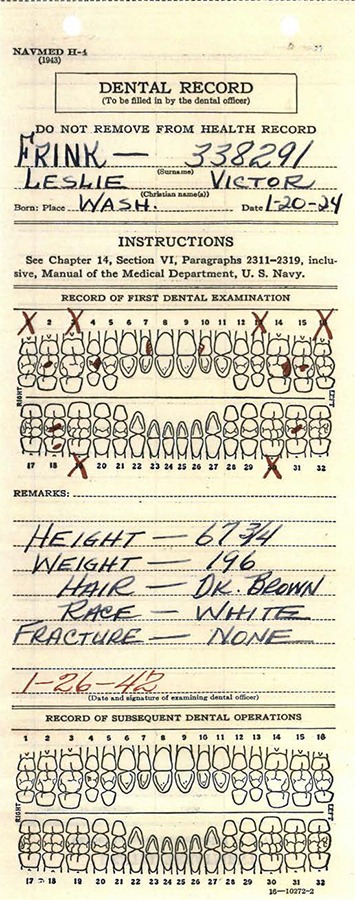 NAVMED H-4
(1943)
DENTAL RECORD
(To be filled in by the dental officer)
DO NOT REMOVE FROM HEALTH RECORD
FRINK — 338291
(Surname)
LESLIE VICTOR
(Christian name(s))
Born: Place WASH. Date 1-20-24
INSTRUCTIONS
See Chapter 14, Section VI, Paragraphs 2311–2319, inclu-
sive, Manual of the Medical Department, U. S. Navy.
RECORD OF FIRST DENTAL EXAMINATION
2 4 5 6 7 8 9 10 11 12 14 15
RIGHT LEFT
17 18 20 21 22 23 24 25 26 27 28 29 31 32
REMARKS:
HEIGHT — 67 3/4
WEIGHT — 196
HAIR — DK. BROWN
RACE — WHITE
FRACTURE — NONE
1-26-42
(Date and signature of examining dental officer)
RECORD OF SUBSEQUENT DENTAL OPERATIONS
1 2 3 4 5 6 7 8 9 10 11 12 13 14 15 16
RIGHT LEFT
17 18 19 20 21 22 23 24 25 26 27 28 29 30 31 32
16—10272-2